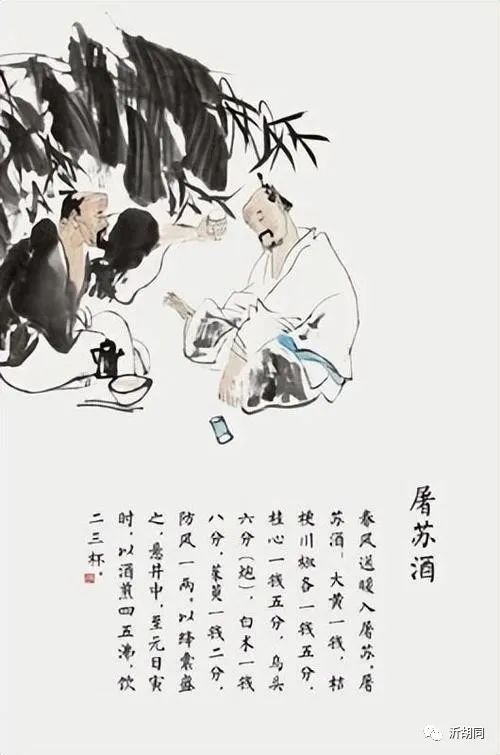 屠苏酒
春风送暖入屠苏,屠
苏酒:大黄一钱,桔
梗川椒各一钱五分,
桂心一钱五分,乌头
六分(炮),白术一钱
八分,茱萸一钱二分,
防风一两,以绛囊盛
之,悬井中,至元日寅
时,以酒煎四五沸,饮
二三杯。
沂胡同